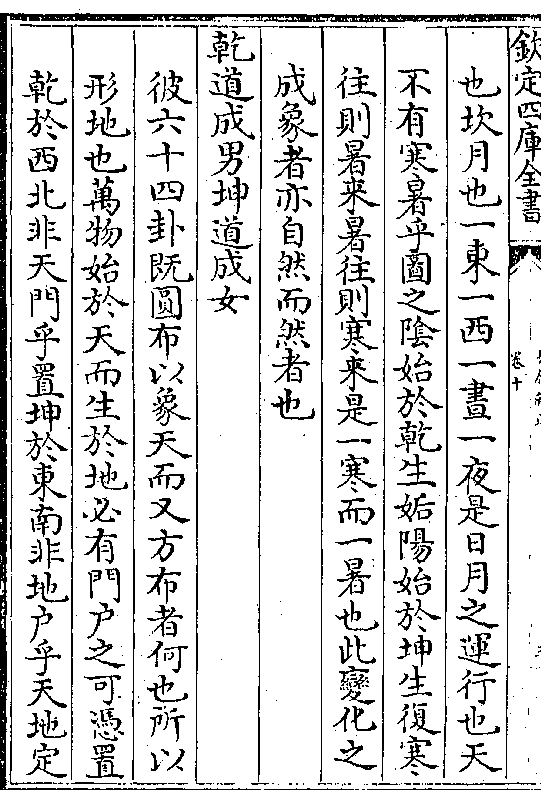 欽定四庫全書
卷十
也坎月也一東一西一晝一夜是日月之運行也天
不有寒暑乎圖之陰始於乾生姤陽始於坤生復寒
往則暑来暑往則寒來是一寒而一暑也此變化之
成象者亦自然而然者也
乾道成男坤道成女
彼六十四卦既圓布以象天而又方布者何也所以
形地也萬物始於天而生於地必有門户之可憑置
乾於西北非天門乎置坤於東南非地户乎天地定